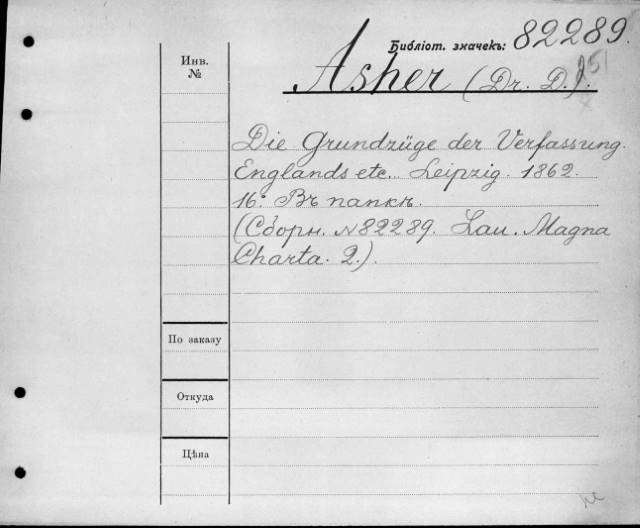 Библіот. значекъ: 82289.
Инв.
№
Asher (Dr. D.).
Die Grundzüge der Verfassung.
Englands etc. Leipzig. 1862.
16° Въ папкѣ.
(Сборн. №82289. Lau. Magna
Charta. 2.).
По заказу
Откуда
Цѣна